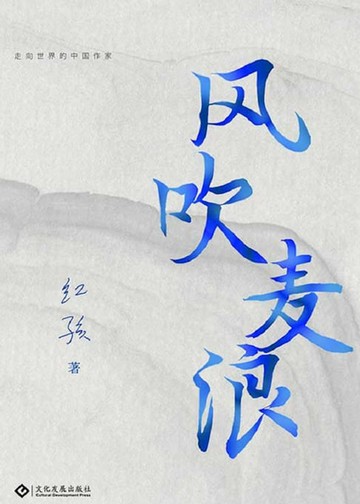 走向世界的中国作家
风吹麦浪
红孩
著
文化发展出版社
Cultural Development Press